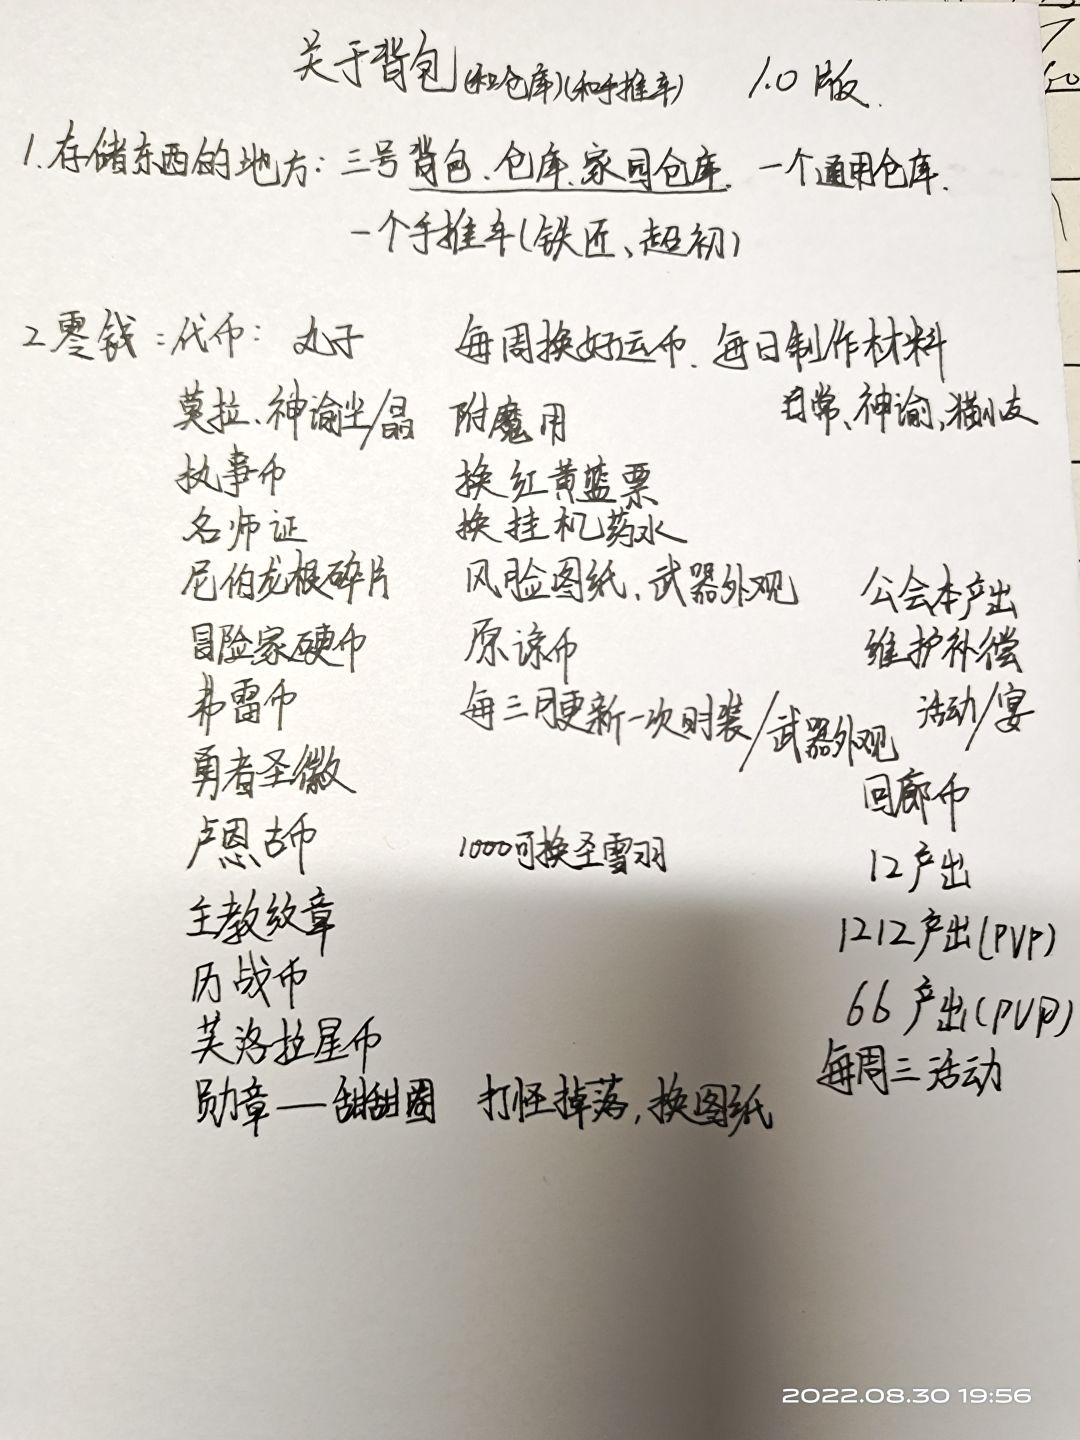 关于背包(和仓库)(和手推车) 1.0版.
1.存储东西的地方:三号背包、仓库、家园仓库. 一个通用仓库.
一个手推车(铁匠、超初)
2.零钱:代币: 丸子 每周换好运币.每日制作材料
莫拉、神谕尘/晶 附魔用 日常、神谕、猫小友
执事币 换红黄蓝票
名师证 换挂机药水
尼伯龙根碎片 风脸图纸、武器外观 公会本产出
冒险家硬币 原谅币 维护补偿
弗雷币 每三月更新一次时装/武器外观 活动/宴
勇者圣徽 回廊币
卢恩古币 1000可换圣雪羽 12产出
主教纹章 1212产出(PVP)
历战币 66产出(PVP)
芙洛拉星币 每周三活动
勋章——甜甜圈 打怪掉落,换图纸
2022.08.30 19:56